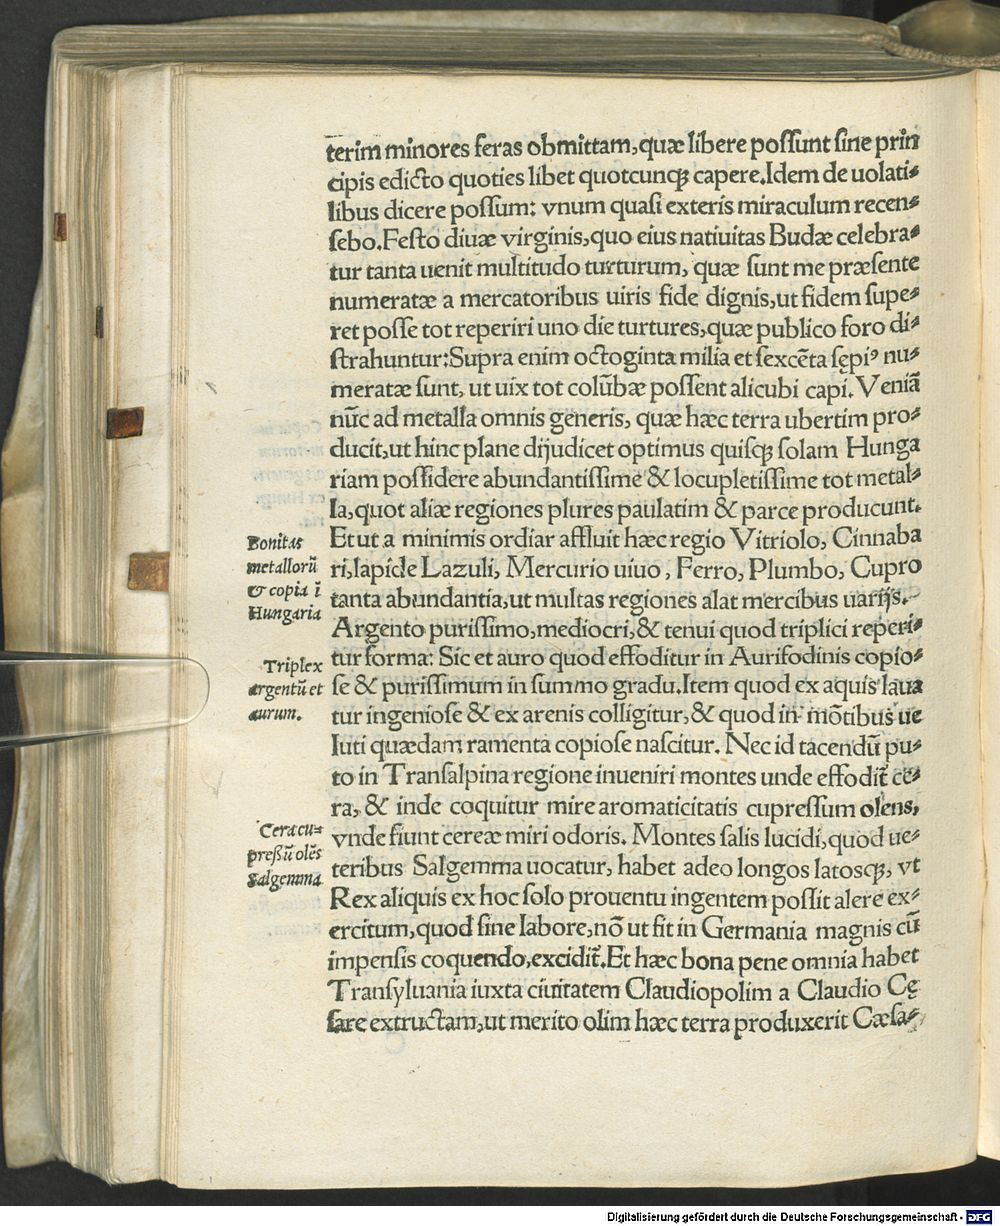 terim minores feras obmittam, quæ libere possunt sine prin
cipis edicto quoties libet quotcunqꝫ capere. Idem de uolati⸗
libus dicere possum: vnum quasi exteris miraculum recen⸗
sebo. Festo diuæ virginis, quo eius natiuitas Budæ celebra⸗
tur tanta uenit multitudo turturum, quæ sunt me præsente
numeratæ a mercatoribus uiris fide dignis, ut fidem supe⸗
ret posse tot reperiri uno die turtures, quæ publico foro di⸗
strahuntur: Supra enim octoginta milia et sexcēta sępiꝰ nu⸗
meratæ sunt, ut uix tot colūbæ possent alicubi capi. Veniā
nūc ad metalla omnis generis, quæ hæc terra ubertim pro⸗
ducit, ut hinc plane dijudicet optimus quisqꝫ solam Hunga
riam possidere abundantissime & locupletissime tot metal⸗
la, quot aliæ regiones plures paulatim & parce producunt.
Et ut a minimis ordiar affluit hæc regio Vitriolo, Cinnaba
ri, lapide Lazuli, Mercurio uiuo, Ferro, Plumbo, Cupro
tanta abundantia, ut multas regiones alat mercibus uarijs.
Argento purissimo, mediocri, & tenui quod triplici reperi⸗
tur forma: Sic et auro quod effoditur in Aurifodinis copio⸗
se & purissimum in summo gradu. Item quod ex aquis laua
tur ingeniose & ex arenis colligitur, & quod in mōtibus ue
luti quædam ramenta copiose nascitur. Nec id tacendū pu⸗
to in Transalpina regione inueniri montes unde effodit̄ ce⸗
ra, & inde coquitur mire aromaticitatis cupressum olens,
vnde fiunt cereæ miri odoris. Montes salis lucidi, quod ue⸗
teribus Salgemma uocatur, habet adeo longos latosqꝫ, vt
Rex aliquis ex hoc solo prouentu ingentem possit alere ex⸗
ercitum, quod sine labore, nō ut fit in Germania magnis cū
impensis coquendo, excidit̄. Et hæc bona pene omnia habet
Transyluania iuxta ciuitatem Claudiopolim a Claudio Cę
sare extructam, ut merito olim hæc terra produxerit Cæsa⸗
Bonitas
metallorū
& copia ī
Hungaria
Triplex
argentū et
aurum.
Cera cu⸗
pressū olēs
Salgemma
Digitalisierung gefördert durch die Deutsche Forschungsgemeinschaft - DFG